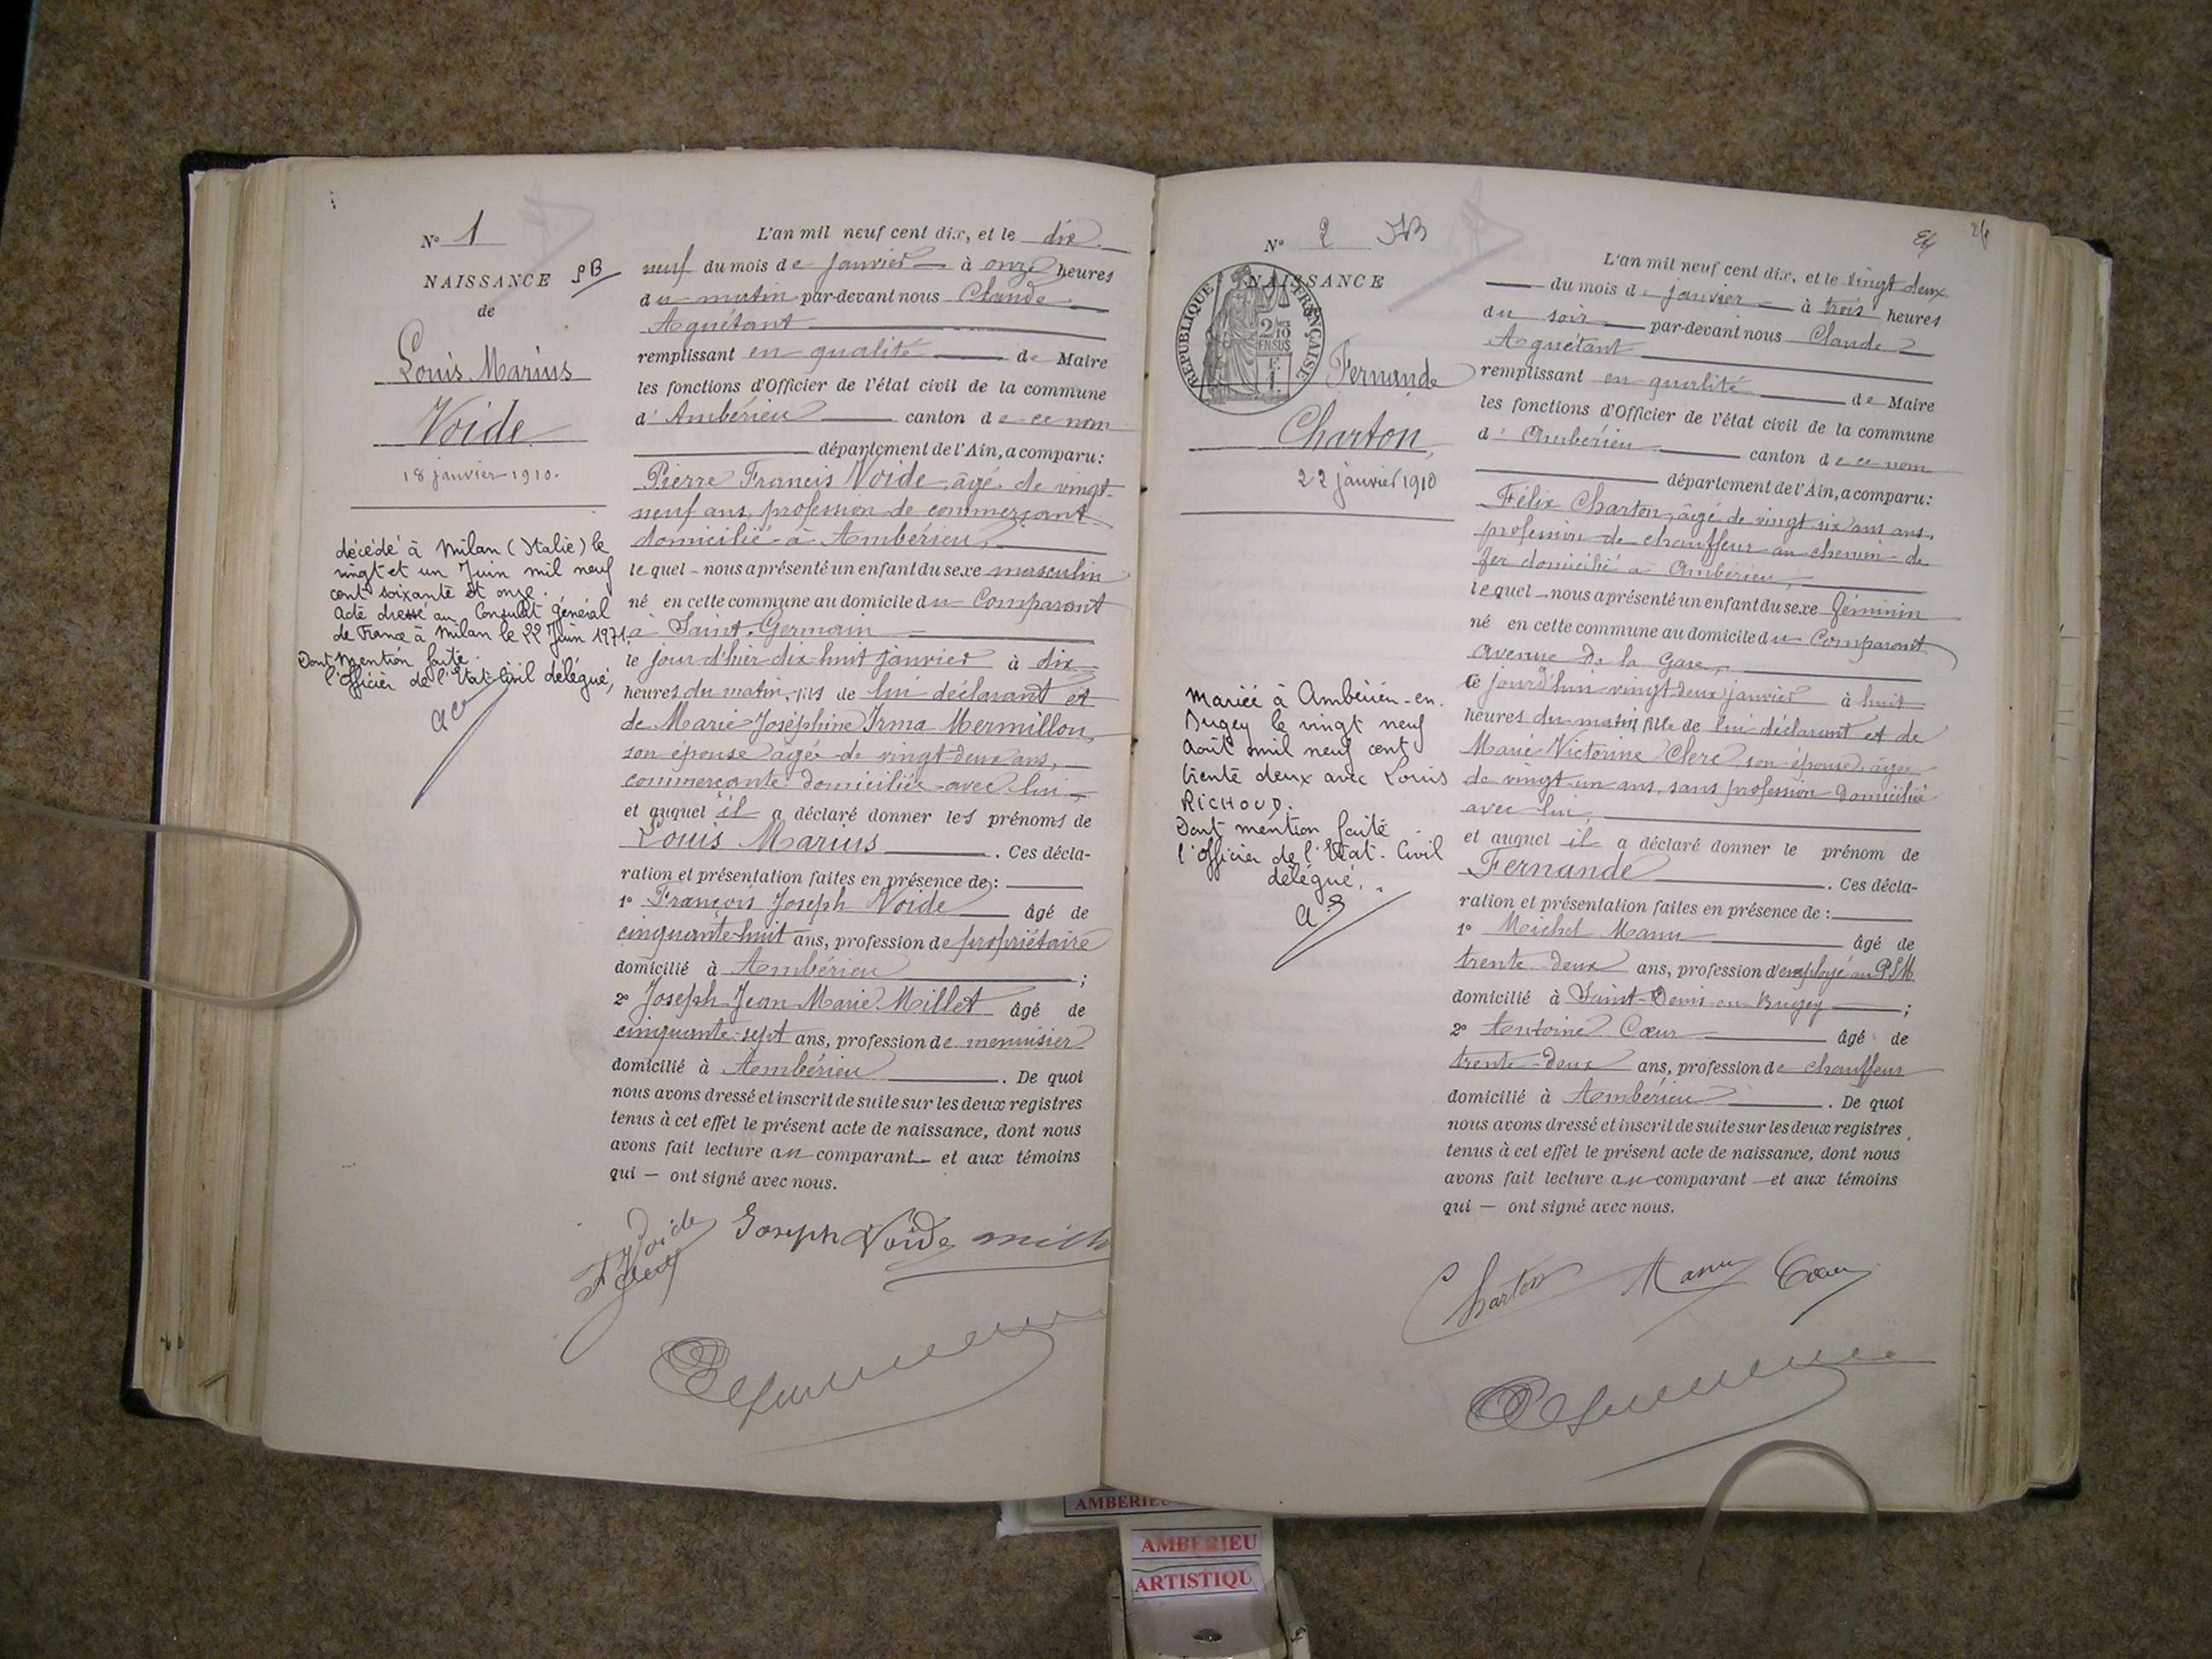 N° 1
NAISSANCE
de
Louis Marius
Voide
18 janvier 1910.
décédé à Milan (Italie) le
vingt et un Juin mil neuf
cent soixante et onze.
Acte dressé au Consulat Général
de France à Milan le 22 Juin 1971.
Dont mention faite.
l'Officier de l'Etat-Civil délégué,
L'an mil neuf cent dix, et le dix
neuf du mois de janvier à onze heures
du matin par-devant nous Claude
Aguétant
remplissant en qualité de Maire
les fonctions d'Officier de l'état civil de la commune
d'Ambérieu canton de ce nom
département de l'Ain, a comparu:
Pierre Francis Voide, âgé de vingt-
neuf ans, profession de commerçant
domicilié à Ambérieu,
lequel nous a présenté un enfant du sexe masculin
né en cette commune au domicile du Comparant
à Saint-Germain
le jour d'hier dix huit janvier à dix
heures du matin, fils de lui déclarant et
de Marie Joséphine Irma Mermillon,
son épouse âgée de vingt-deux ans,
commerçante domiciliée avec lui
et auquel il a déclaré donner les prénoms de
Louis Marius. Ces décla-
ration et présentation faites en présence de :
1° François Joseph Voide âgé de
cinquante-huit ans, profession de propriétaire
domicilié à Ambérieu ;
2° Joseph Jean Marie Millet âgé de
cinquante-sept ans, profession de menuisier
domicilié à Ambérieu. De quoi
nous avons dressé et inscrit de suite sur les deux registres
tenus à cet effet le présent acte de naissance, dont nous
avons fait lecture au comparant et aux témoins
qui — ont signé avec nous.
Voide Joseph Voide
N° 2
NAISSANCE
REPUBLIQUE FRANÇAISE
Fernande
Charton,
22 janvier 1910
Mariée à Ambérieu-en-
Bugey le vingt neuf
Août mil neuf cent
trente deux avec Louis
RICHOUD.
Dont mention faite
l'Officier de l'Etat-Civil
délégué.
L'an mil neuf cent dix, et le vingt deux
du mois de janvier à trois heures
du soir par-devant nous Claude
Aguétant
remplissant en qualité de Maire
les fonctions d'Officier de l'état civil de la commune
d'Ambérieu canton de ce nom
département de l'Ain, a comparu:
Félix Charton, âgé de vingt six ans ans,
profession de chauffeur au chemin de
fer domicilié à Ambérieu,
lequel nous a présenté un enfant du sexe féminin
né en cette commune au domicile du Comparant
avenue de la Gare,
Ce jourd'hui vingt deux janvier à huit
heures du matin, fille de lui déclarant et de
Marie Victorine Clerc, son épouse, âgée
de vingt-un ans, sans profession domiciliée
avec lui,
et auquel il a déclaré donner le prénom de
Fernande. Ces décla-
ration et présentation faites en présence de :
1° Michel Manu âgé de
trente deux ans, profession d'employé au PLM
domicilié à Saint-Denis-en-Bugey ;
2° Antoine Cœur âgé de
trente-deux ans, profession de chauffeur
domicilié à Ambérieu. De quoi
nous avons dressé et inscrit de suite sur les deux registres
tenus à cet effet le présent acte de naissance, dont nous
avons fait lecture au comparant et aux témoins
qui — ont signé avec nous.
Charton Manu Cœur
AMBERIEU
AMBERIEU
ARTISTIQU